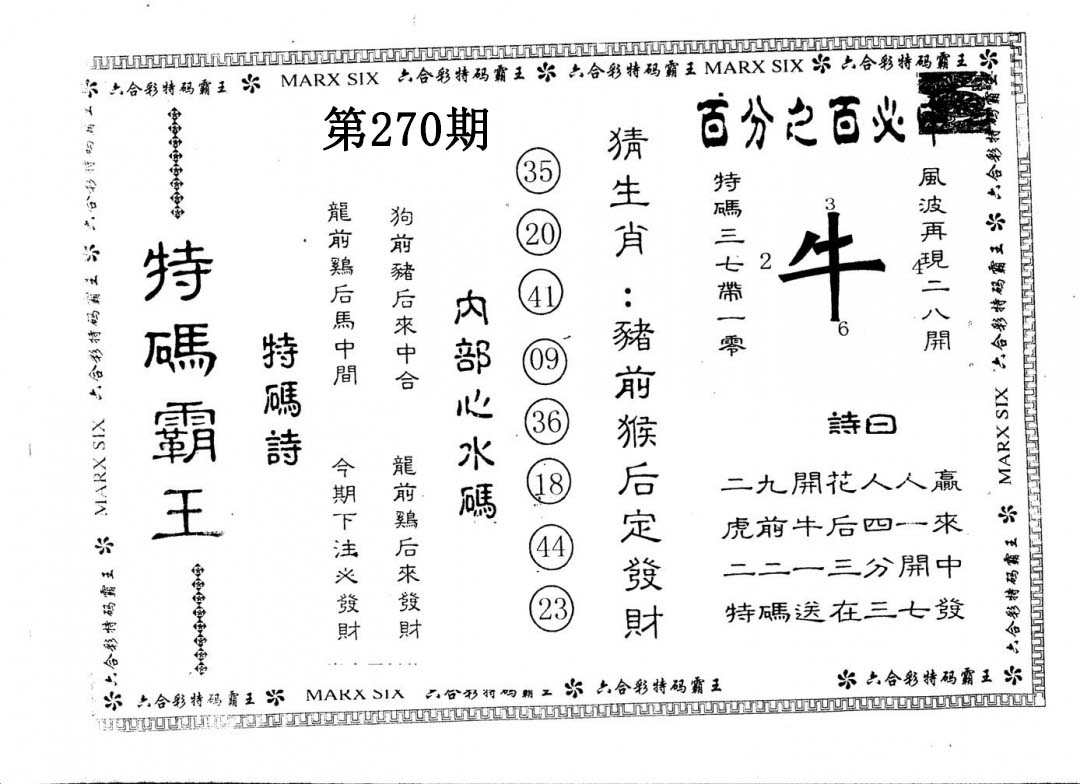 六合彩特码霸王 MARX SIX 六合彩特码霸王 六合彩特码霸王 MARX SIX 六合彩特码霸王
第270期
百分之百必
特碼三七帶一零
風波再現二八開
3
2
牛
4
6
詩曰
二九開花人人贏
虎前牛后四一來
二二一三分開中
特碼送在三七發
猜生肖:豬前猴后定發財
35
20
41
09
36
18
44
23
内部心水碼
狗前豬后來中合
龍前鷄后來發財
龍前鷄后馬中間
今期下注必發財
特碼詩
特碼霸王
六合彩特码霸王
六合彩特码霸王
六合彩特码霸王
MARX SIX
六合彩特码霸王
六合彩特码霸王
六合彩特码霸王
MARX SIX
六合彩特码霸王
六合彩特码霸王 MARX SIX 六合彩特码霸王 六合彩特码霸王 六合彩特码霸王